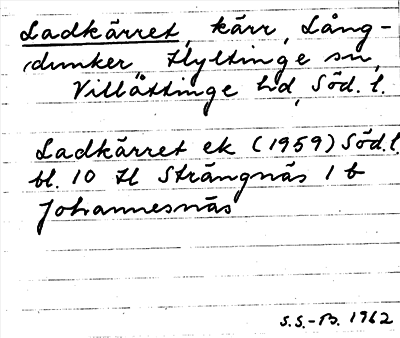 Ladkärret, kärr, Lång-
dunker Hyltinge sn,
Villåttinge hd, Söd. l.
Ladkärret ek (1959) Söd.l.
bl. 10 H Strängnäs 1 b
Johannesnäs
S.S.-B. 1962